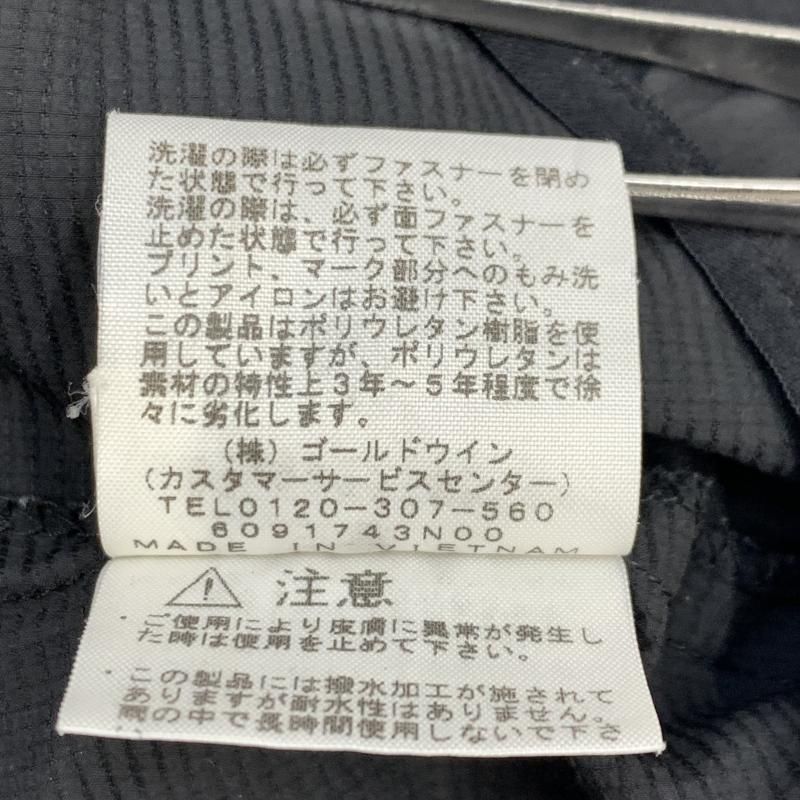 洗濯の際は必ずファスナーを閉め
た状態で行って下さい。
洗濯の際は、必ず面ファスナーを
止めた状態で行って下さい。
プリント、マーク部分へのもみ洗
いとアイロンはお避け下さい。
この製品はポリウレタン樹脂を使
用していますが、ポリウレタンは
素材の特性上3年~5年程度で徐
々に劣化します。
(株)ゴールドウイン
(カスタマーサービスセンター)
TEL0120-307-560
6091743N00
MADE IN VIETNAM
注意
ご使用により皮膚に異常が発生し
た時は使用を止めて下さい。
この製品には撥水加工が施されて
ありますが耐水性はありません。
雨の中で長時間使用しないで下さ